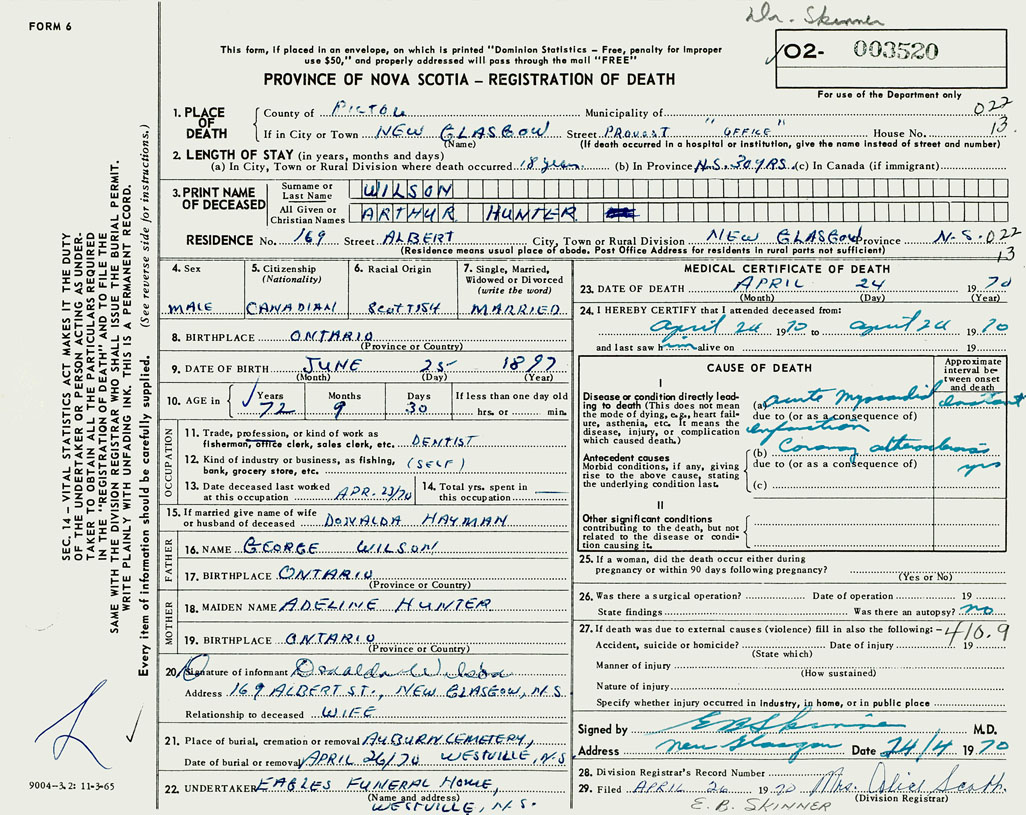 Dr. Skinner
FORM 6
This form, if placed in an envelope, on which is printed "Dominion Statistics – Free, penalty for improper
use $50," and properly addressed will pass through the mail "FREE"
PROVINCE OF NOVA SCOTIA – REGISTRATION OF DEATH
02- 003520
For use of the Department only
1. PLACE OF DEATH
County of PICTOU Municipality of 022
If in City or Town NEW GLASGOW Street PROVOST "OFFICE" House No. 13
(Name) (If death occurred in a hospital or institution, give the name instead of street and number)
2. LENGTH OF STAY (in years, months and days)
(a) In City, Town or Rural Division where death occurred 18 years (b) In Province N.S. 30 YRS. (c) In Canada (if immigrant)
3. PRINT NAME OF DECEASED
Surname or Last Name WILSON
All Given or Christian Names ARTHUR HUNTER
RESIDENCE No. 169 Street ALBERT City, Town or Rural Division NEW GLASGOW Province N.S. 022
(Residence means usual place of abode. Post Office Address for residents in rural parts not sufficient) 13
4. Sex
MALE
5. Citizenship
(Nationality)
CANADIAN
6. Racial Origin
SCOTTISH
7. Single, Married,
Widowed or Divorced
(write the word)
MARRIED
8. BIRTHPLACE ONTARIO
(Province or Country)
9. DATE OF BIRTH JUNE 25 1897
(Month) (Day) (Year)
10. AGE in Years Months Days If less than one day old
72 9 30 hrs. or min.
OCCUPATION
11. Trade, profession, or kind of work as
fisherman, office clerk, sales clerk, etc. DENTIST
12. Kind of industry or business, as fishing,
bank, grocery store, etc. (SELF)
13. Date deceased last worked
at this occupation APR. 23/70
14. Total yrs. spent in
this occupation
15. If married give name of wife
or husband of deceased DONALDA HAYMAN
FATHER
16. NAME GEORGE WILSON
17. BIRTHPLACE ONTARIO
(Province or Country)
MOTHER
18. MAIDEN NAME ADELINE HUNTER
19. BIRTHPLACE ONTARIO
(Province or Country)
20. Signature of informant Donalda Wilson
Address 169 ALBERT ST., NEW GLASGOW, N.S.
Relationship to deceased WIFE
21. Place of burial, cremation or removal AUBURN CEMETERY,
Date of burial or removal APRIL 26/70 WESTVILLE, N.S
22. UNDERTAKER EAGLES FUNERAL HOME,
(Name and address)
WESTVILLE, N.S.
MEDICAL CERTIFICATE OF DEATH
23. DATE OF DEATH APRIL 24 1970
(Month) (Day) (Year)
24. I HEREBY CERTIFY that I attended deceased from:
April 24 1970 to April 24 1970
and last saw him alive on 19
CAUSE OF DEATH
Approximate interval between onset and death
I
Disease or condition directly leading to death (This does not mean the mode of dying, e.g., heart failure, asthenia, etc. It means the disease, injury, or complication which caused death.)
(a) acute Myocardial instant
due to (or as a consequence of)
infarction
Antecedent causes
Morbid conditions, if any, giving rise to the above cause, stating the underlying condition last.
(b) Coronary atherosclerosis
due to (or as a consequence of) yrs
(c)
II
Other significant conditions
contributing to the death, but not
related to the disease or condition
causing it.
25. If a woman, did the death occur either during
pregnancy or within 90 days following pregnancy?
(Yes or No)
26. Was there a surgical operation? Date of operation 19
State findings Was there an autopsy? no
27. If death was due to external causes (violence) fill in also the following: – 410.9
Accident, suicide or homicide? Date of injury 19
(State which)
Manner of injury
(How sustained)
Nature of injury
Specify whether injury occurred in industry, in home, or in public place
Signed by EB Skinner M.D.
Address New Glasgow Date 24/4 1970
28. Division Registrar's Record Number
29. Filed APRIL 26 1970 Mrs. Alice Scott
(Division Registrar)
E.B. SKINNER
SEC. 14 – VITAL STATISTICS ACT MAKES IT THE DUTY
OF THE UNDERTAKER OR PERSON ACTING AS UNDER-
TAKER TO OBTAIN ALL THE PARTICULARS REQUIRED
IN THE "REGISTRATION OF DEATH" AND TO FILE THE
SAME WITH THE DIVISION REGISTRAR WHO SHALL ISSUE THE BURIAL PERMIT.
WRITE PLAINLY WITH UNFADING INK. THIS IS A PERMANENT RECORD.
Every item of information should be carefully supplied. (See reverse side for instructions.)
9004-3.2: 11-3-65